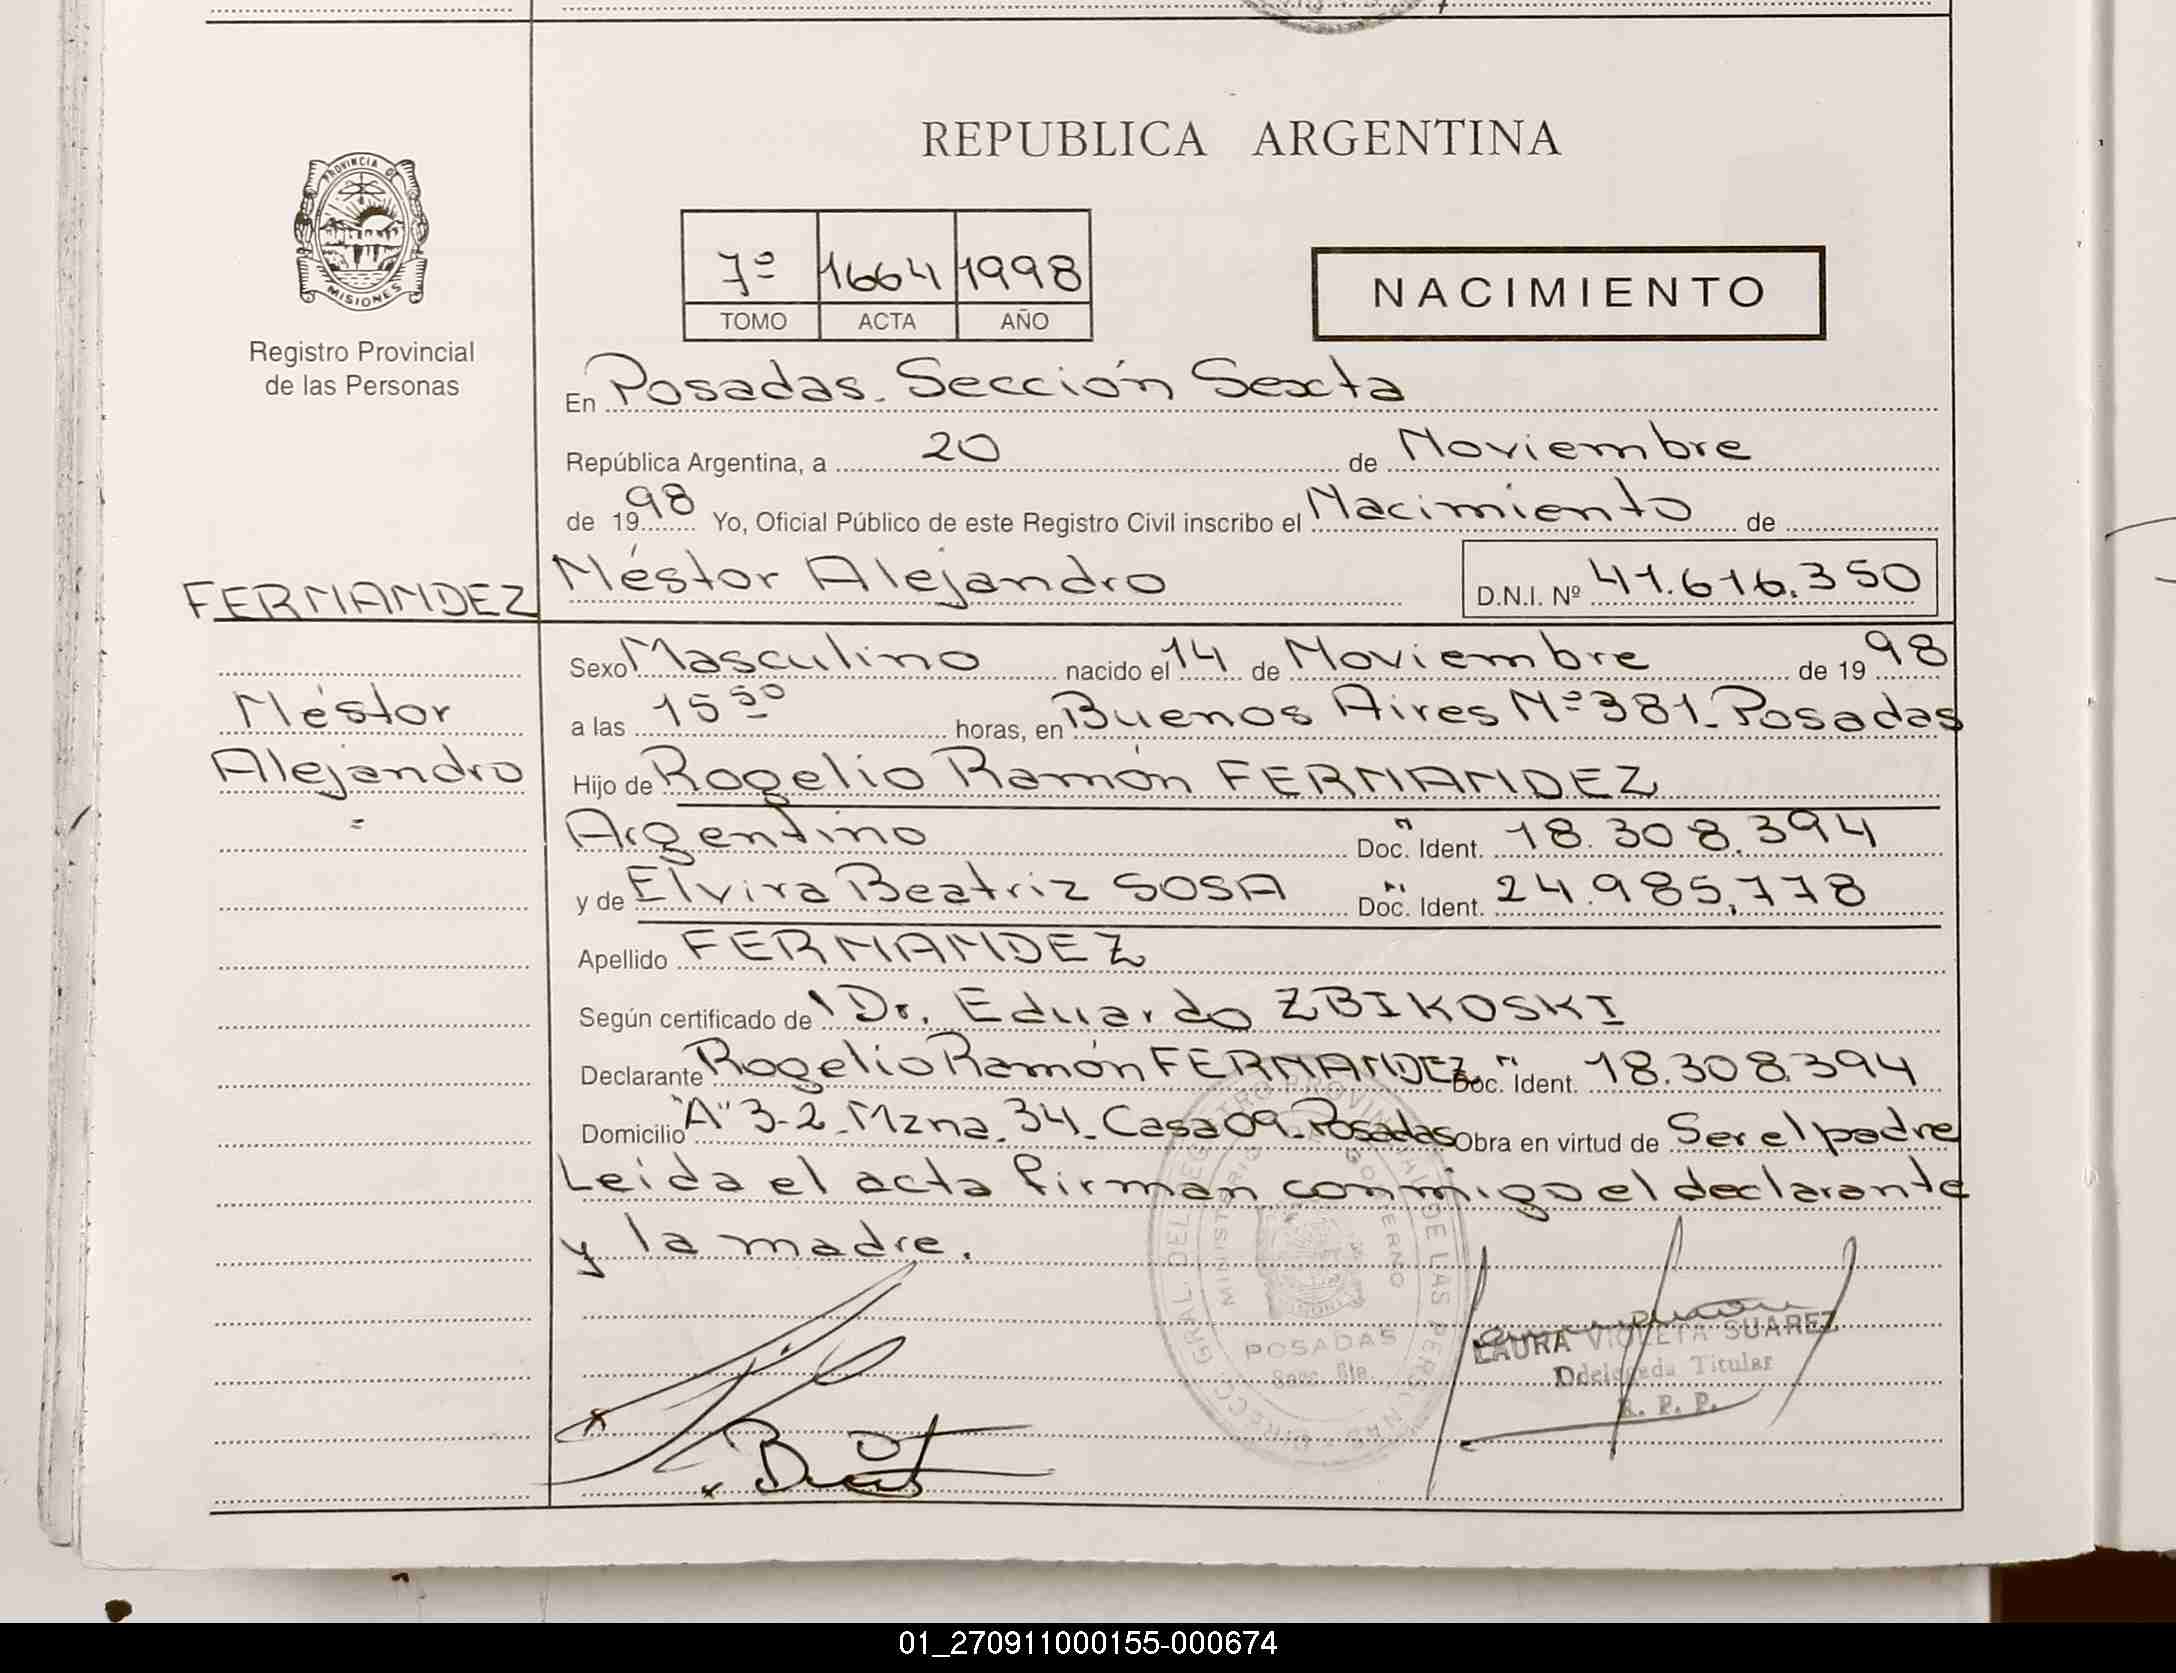 REPUBLICA ARGENTINA
PROVINCIA DE
MISIONES
Registro Provincial
de las Personas
7º 1664 1998
TOMO ACTA AÑO
NACIMIENTO
En Posadas. Sección Sexta
República Argentina, a 20 de Noviembre
de 1998 Yo, Oficial Público de este Registro Civil inscribo el Nacimiento de
FERNANDEZ Néstor Alejandro D.N.I. Nº 41.616.350
Sexo Masculino nacido el 14 de Noviembre de 1998
Néstor
a las 15 50 horas, en Buenos Aires Nº 381. Posadas
Alejandro
Hijo de Rogelio Ramón FERNANDEZ
Argentino Doc. Ident. 18.308.394
y de Elvira Beatriz SOSA Doc. Ident. 24.985.778
Apellido FERNANDEZ
Según certificado de Dr. Eduardo ZBIKOSKI
Declarante Rogelio Ramón FERNANDEZ Doc. Ident. 18.308.394
Domicilio "A" 3-2. Mzna. 34. Casa 09. Posadas Obra en virtud de Ser el padre
Leida el acta firman conmigo el declarante
y la madre.
DIRECC. GRAL. DEL REGISTRO PROVINCIAL DE LAS PERSONAS
MINISTERIO GOBIERNO
POSADAS
Secc. 6ta.
LAURA VIOLETA SUAREZ
Ddelegada Titular
R. P. P.
01_270911000155-000674